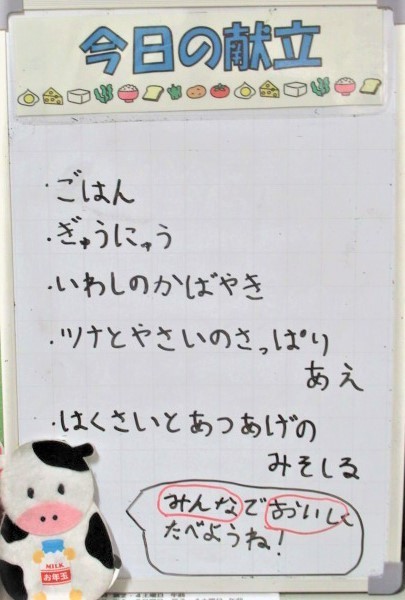 今日の献立
・ごはん
・ぎゅうにゅう
・いわしのかばやき
・ツナとやさいのさっぱり
あえ
・はくさいとあつあげの
みそしる
みんなでおいしく
たべようね!
MILK
お年玉